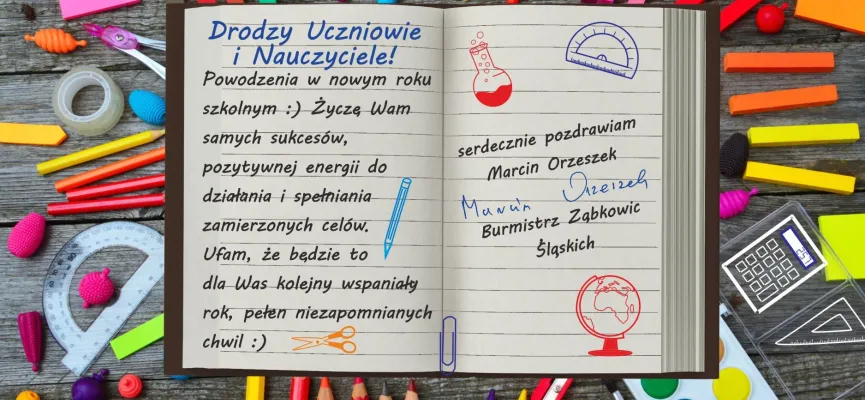 Drodzy Uczniowie
i Nauczyciele!
Powodzenia w nowym roku
szkolnym :) Życzę Wam
samych sukcesów,
pozytywnej energii do
działania i spełniania
zamierzonych celów.
Ufam, że będzie to
dla Was kolejny wspaniały
rok, pełen niezapomnianych
chwil :)
serdecznie pozdrawiam
Marcin Orzeszek
Marcin Orzeszek
Burmistrz Ząbkowic
Śląskich